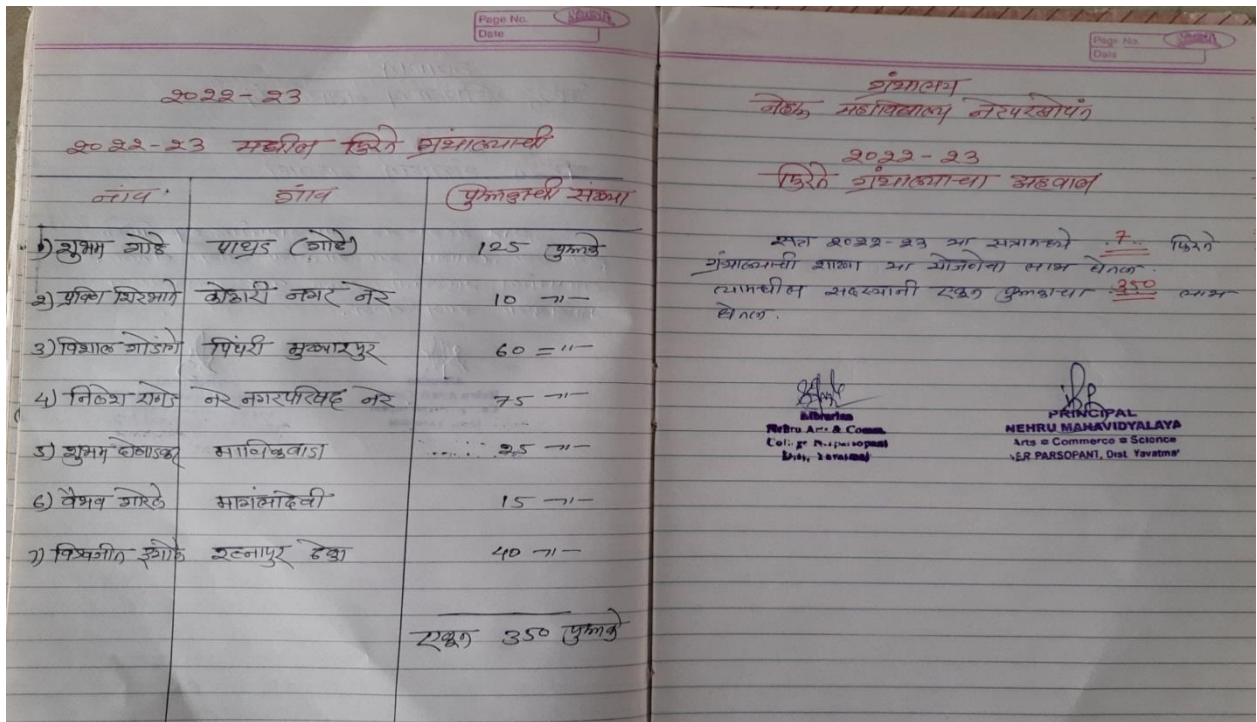 Page No.
Date
२०२२-२३
२०२२-२३ मधील फिरते ग्रंथालयाची
नांव गांव पुस्तकाची संख्या
१) शुभम गोहे पाथ्रड (गोळे) 125 पुस्तके
२) शिरभाते कोठारी नगर नेर 10 -〃-
3) विशाल पिंपरी मुख्त्यारपुर 60 =〃-
4) निलेश नेर नगरपरिषद नेर 75 -〃-
5) शुभम माणिकवाडा 25 -〃-
6) वैभव गोरले मांगलादेवी 15 -〃-
7) विश्वजीत इंगोले रत्नापुर 40 -〃-
एकून 350 पुस्तके
Page No.
Date
ग्रंथालय
नेहरू महाविद्यालय नेरपरसोपंत
२०२२-२३
फिरते ग्रंथालयाचा अहवाल
सत्र २०२२-२३ या सत्रामध्ये 7 फिरते
ग्रंथालयाची शाखा या योजनेचा लाभ घेतला.
त्यामधील सदस्यांनी एकून पुस्तकाचा 350 लाभ
घेतला.
Librarian
Nehru Arts & Comm.
College Nerparsopant
Dist. Yavatmal
PRINCIPAL
NEHRU MAHAVIDYALAYA
Arts & Commerce & Science
NER PARSOPANT, Dist. Yavatmal